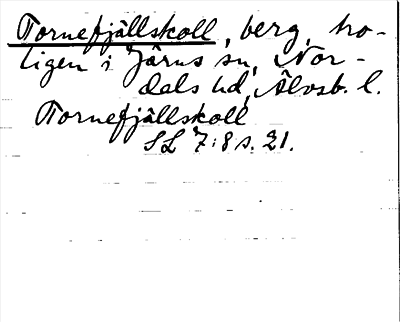 Tornefjällskoll, berg, tro-
ligen i Järns sn, Nor-
dals hd, Älvsb. l.
Tornefjällskoll
SL 7:8 s. 21.